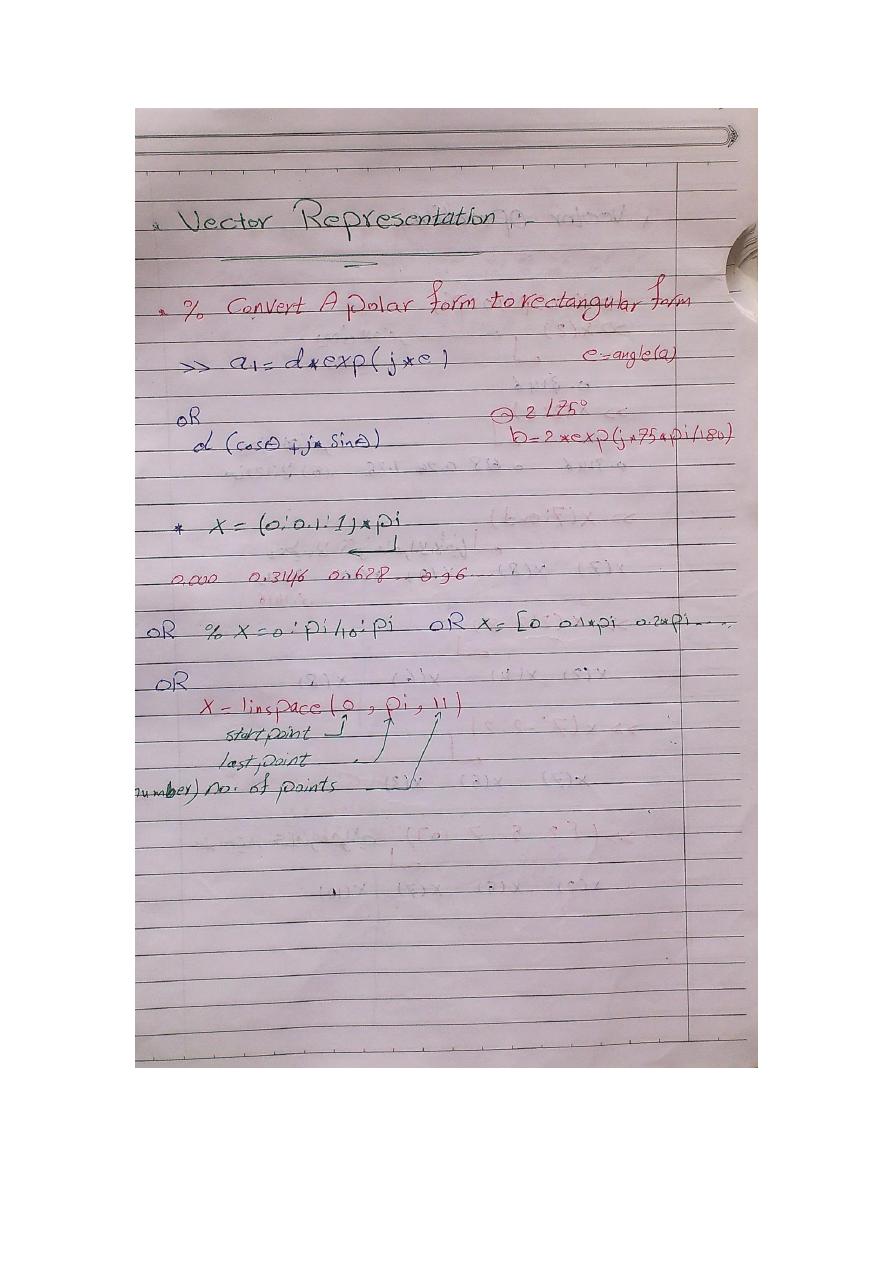 * Vector Representation :-
* % Convert A polar form to rectangular form
>> a1 = d*exp(j*e)
e=angle(a)
OR
d (cosθ + j* sinθ)
2 ∠75°
b=2*exp(j*75*pi/180)
* X = (0:0.1:1)*pi
0.000 0.3146 0.628
OR % X=0:pi/10:pi OR X= [0 0.1*pi 0.2*pi ....
OR
X = linspace(0, pi, 11)
start point
last point
number) no. of points